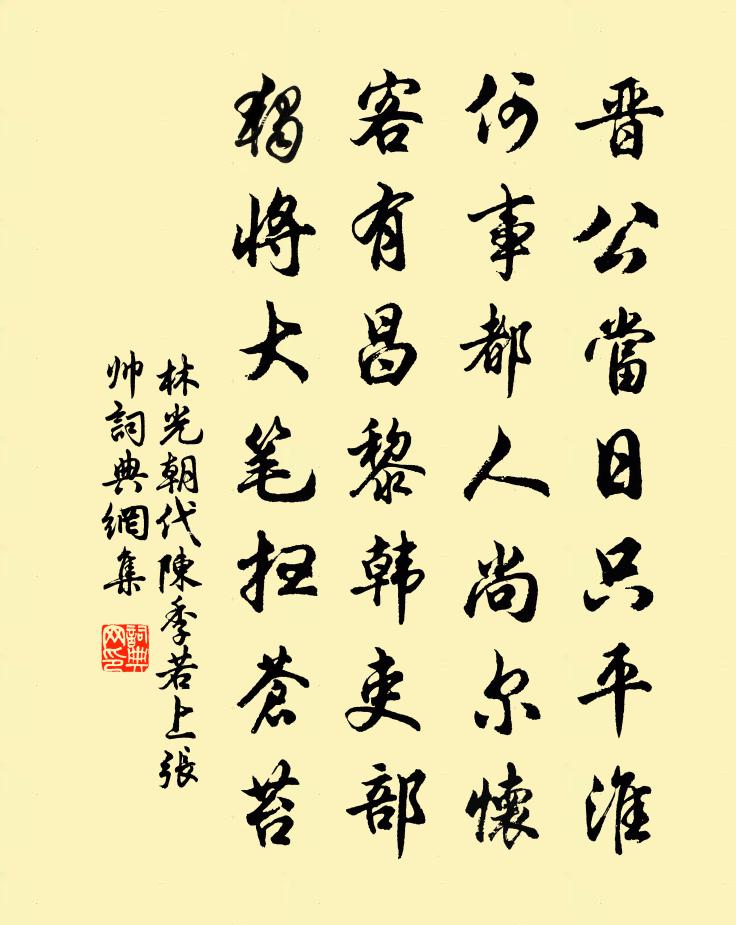 晋公當日只平淮
何事都人尚尔懷
客有昌黎韩吏部
獨将大笔扫蒼苔
林光朝代陳季若上張
帅詞典網集
詞典网印